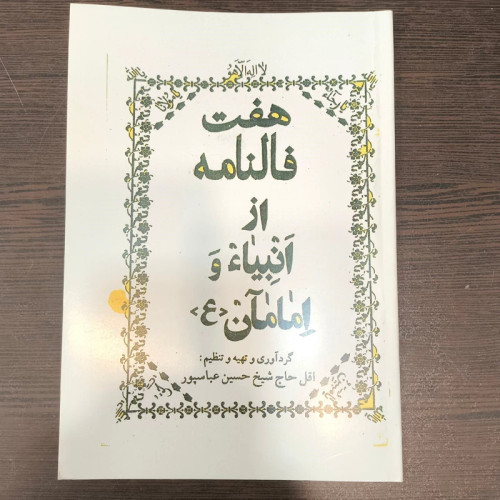 لا اله الا الله
هفت
فالنامه
از
انبیاء و
امامان <ع>
گردآوری و تهیه و تنظیم :
اقل حاج شیخ حسین عباسپور